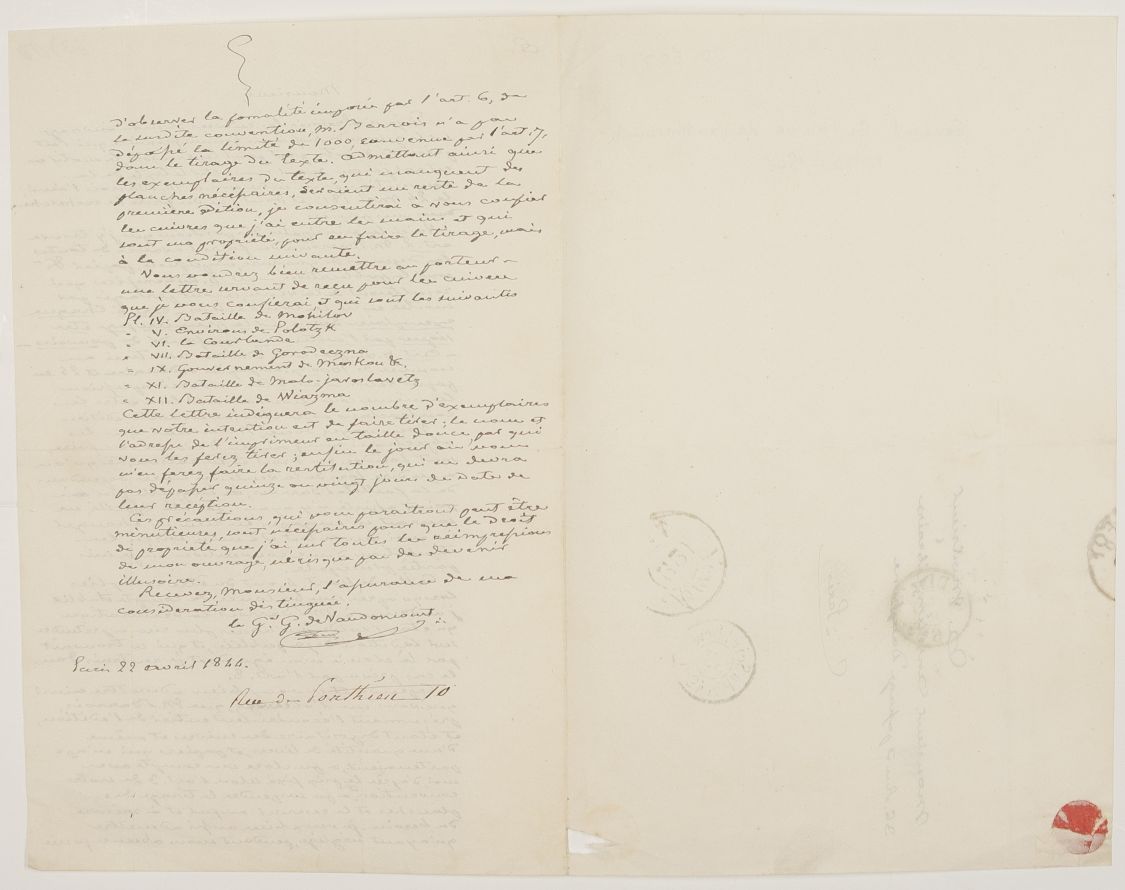 d'observer la fomalité imposée par l'art. 6, de
la susdite convention, M. Barrois n'a pas
dépassé la limite de 1000, convenue par l'art. 7,
dans le tirage du texte. Admettant ainsi que
les exemplaires du texte, qui manquent des
planches nécessaires, seraient un reste de la
première édition, je consentirai à vous confier
les cuivres que j'ai entre les mains et qui
sont ma propriété, pour en faire le tirage, mais
à la condition suivante.
Vous voudrez bien remettre au porteur
une lettre servant de reçu pour les cuivres
que je vous confierai, et qui sont les suivantes
Pl. IV. Bataille de Mohilow
" V. Environs de Polotzk
" VI. la Courlande
" VII. Bataille de Gorodeczna
" IX. Gouvernement de Moskou &.
" XI. Bataille de Malo-jaroslavetz
" XII. Bataille de Wiazma
Cette lettre indiquera le nombre d'exemplaires
que votre intention est de faire tirer; le nom et
l'adresse de l'imprimeur en taille douce par qui
vous les ferez tirer; enfin le jour où vous
m'en ferez faire la restitution, qui ne devra
pas dépasser quinze ou vingt jours de date de
leur recéption.
Ces précautions, qui vous paraitront peut être
minutieuses, sont nécessaires pour que le droit
de propriété que j'ai sur toutes les réimpressions
de mon ouvrage ne risque pas de devenir
illusoire.
Recevez, Monsieur, l'assurance de ma
consideration distinguée.
le Gal G. de Vaudoncourt
Paris 22 avril 1844.
Rue de Ponthieu 10